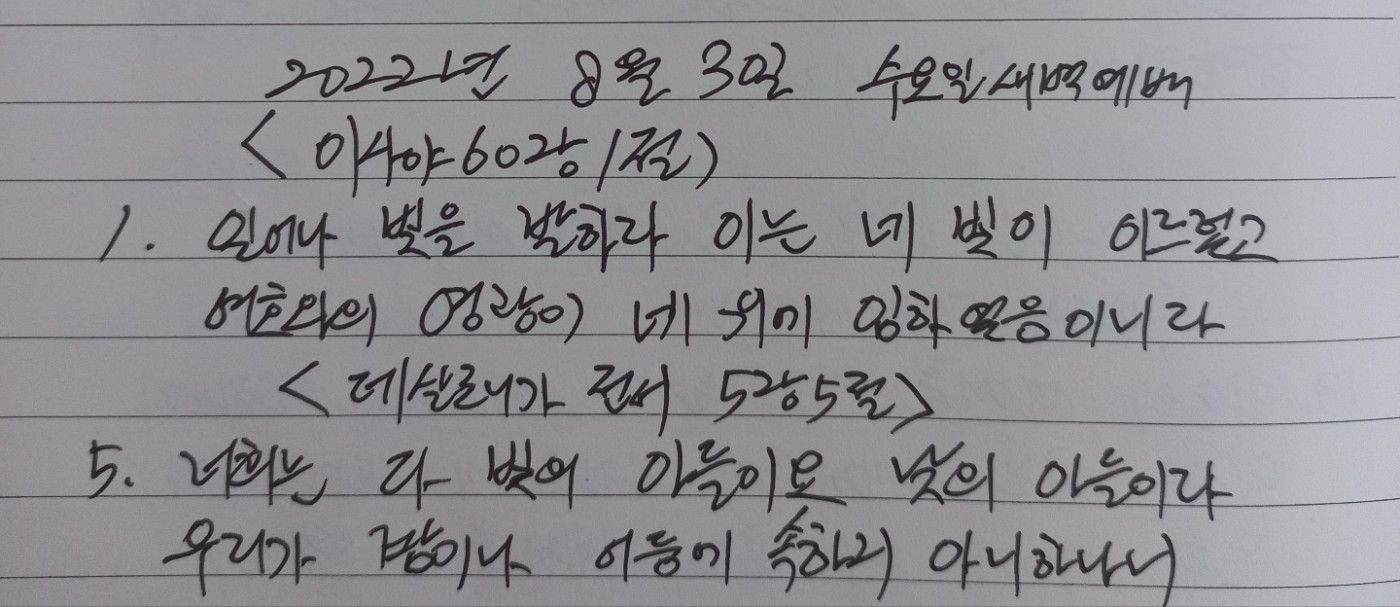 2022년 8월 3일 수요일새벽예배
< 이사야60장1절>
1. 일어나 빛을 발하라 이는 네 빛이 이르렀고
여호와의 영광이 네 위에 임하였음이니라
<데살로니가 전서 5장5절>
5. 너희는 다 빛의 아들이요 낮의 아들이라
우리가 밤이나 어둠에 속하지 아니하나니